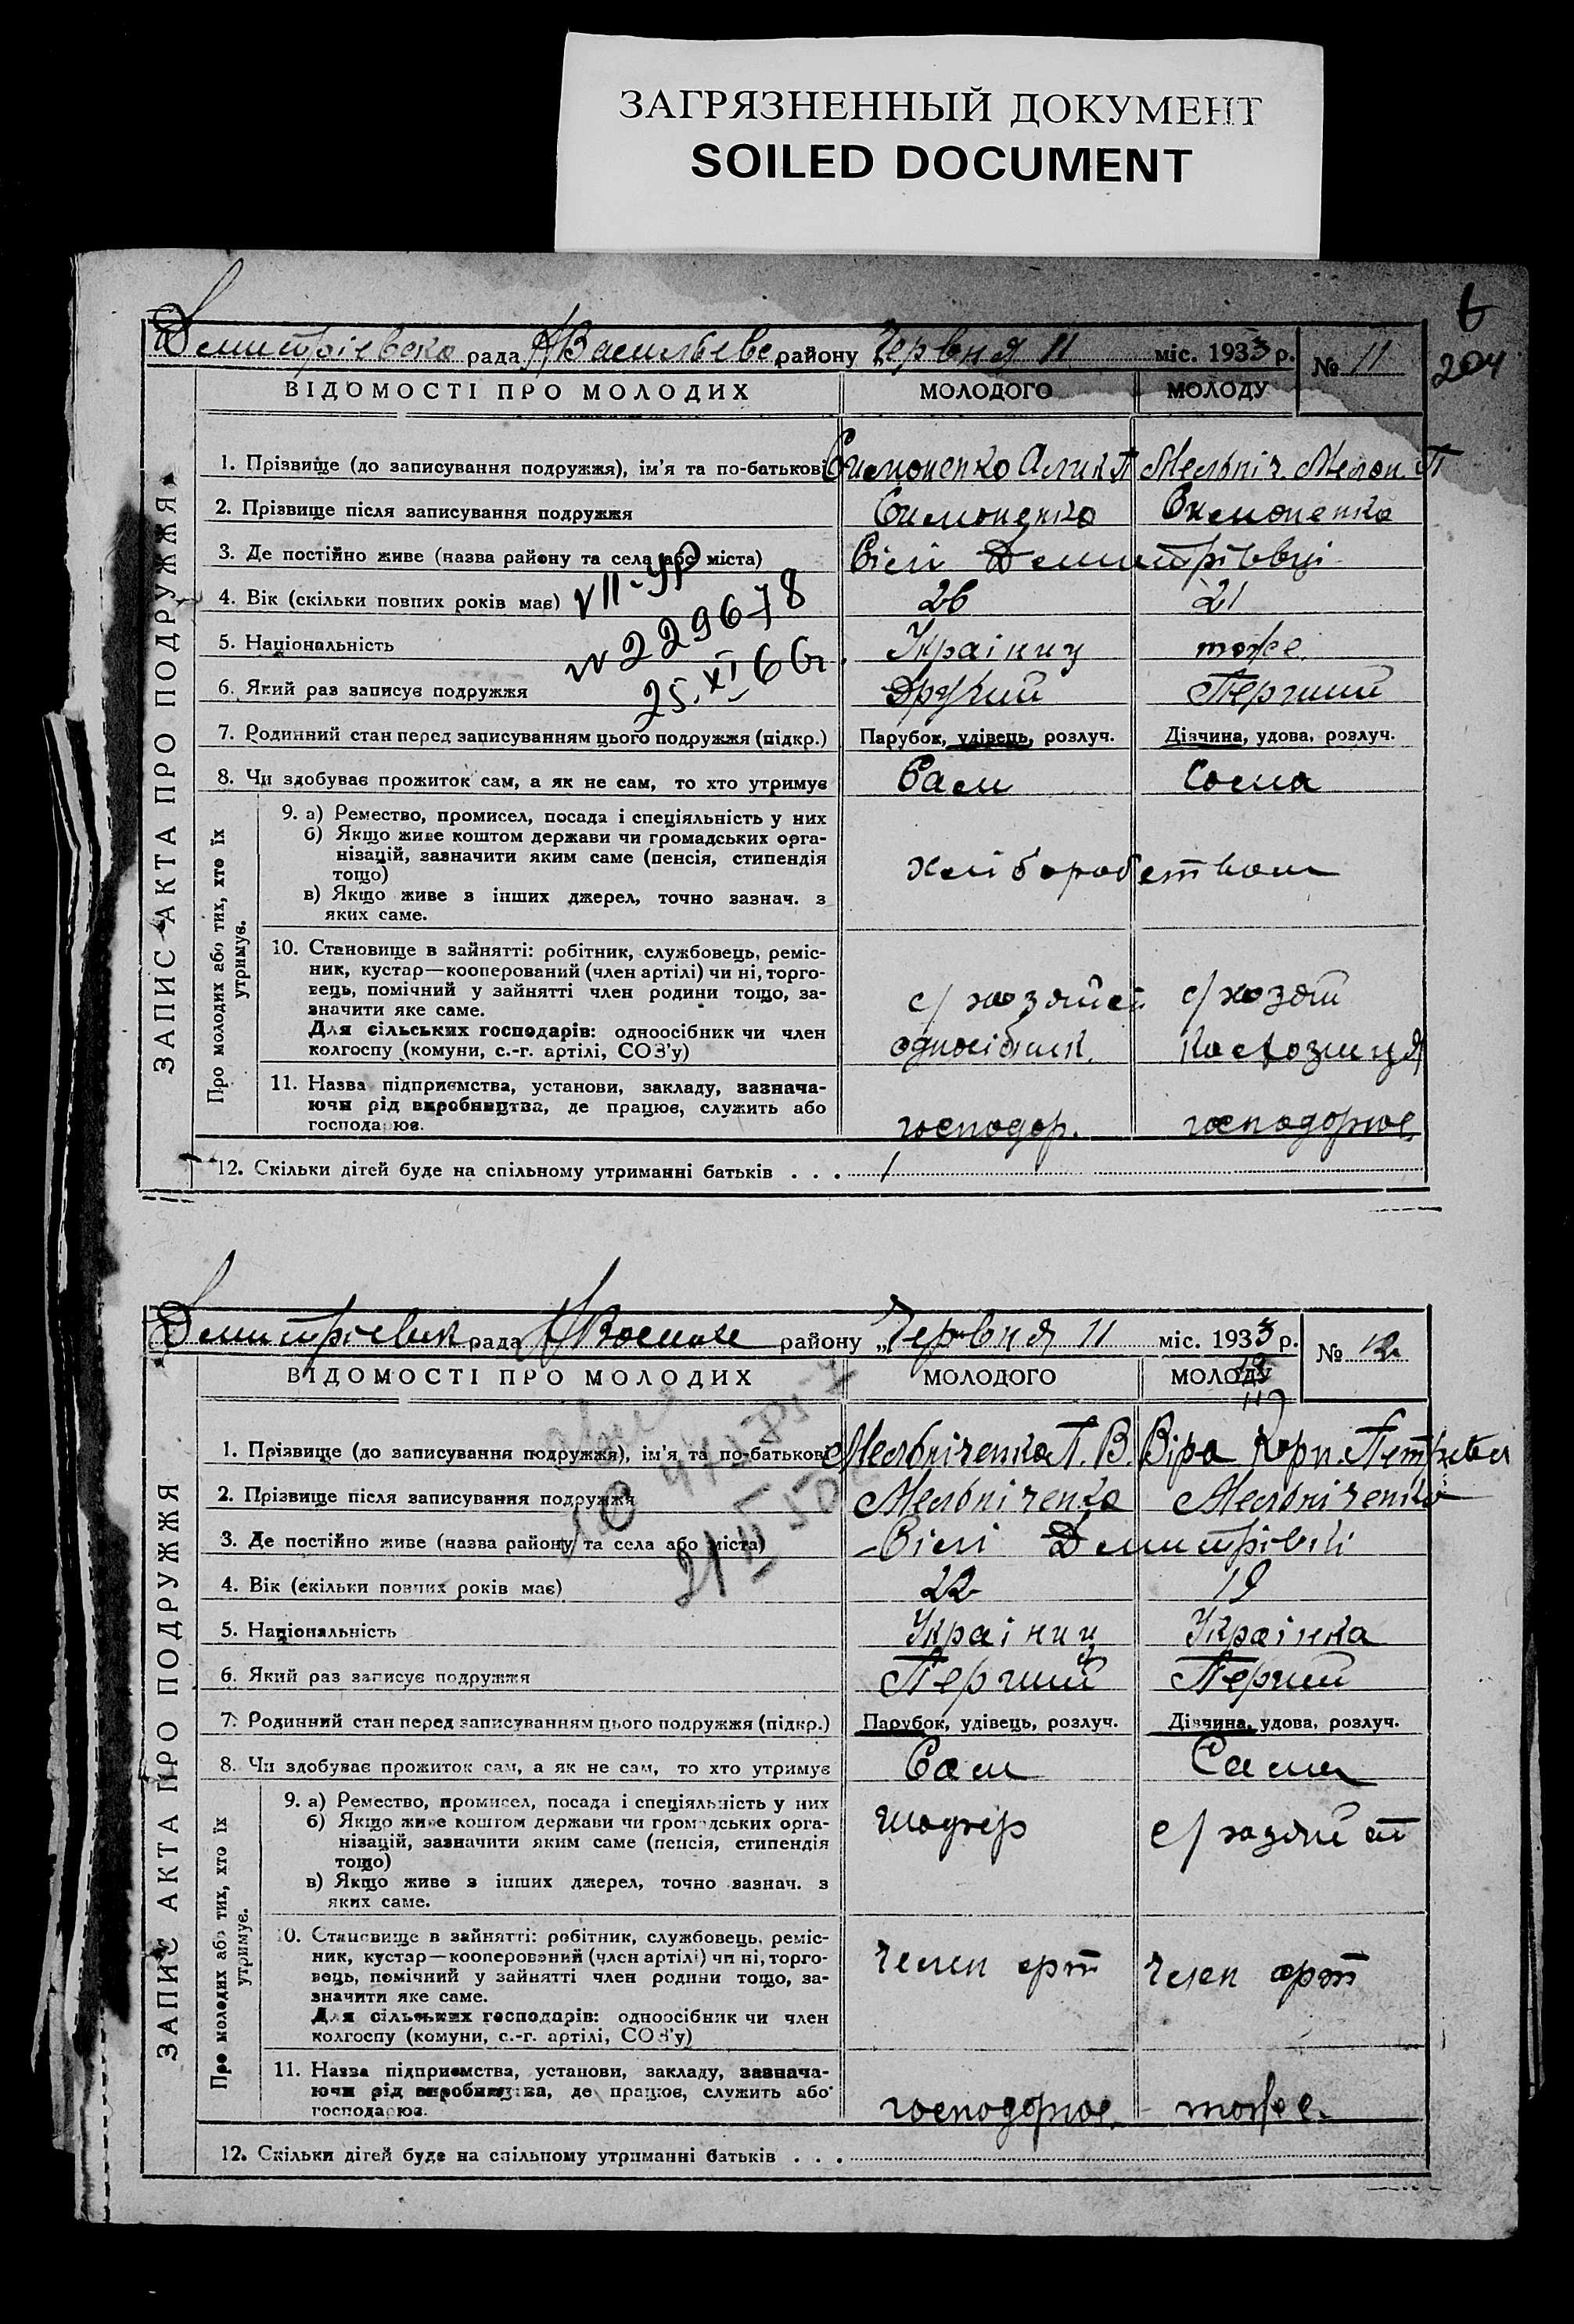 ЗАГРЯЗНЕННЫЙ ДОКУМЕНТ
SOILED DOCUMENT
6
204
рада району Червня 11 міс. 1933 р. № 11
ВІДОМОСТІ ПРО МОЛОДИХ МОЛОДОГО МОЛОДУ
ЗАПИС АКТА ПРО ПОДРУЖЖЯ
1. Прізвище (до записування подружжя), ім'я та по-батькові Симоненко
2. Прізвище після записування подружжя Симоненко Симоненко
3. Де постійно живе (назва району та села або міста) Сілі
4. Вік (скільки повних років має) 26 21
VII-УР
№ 229678
25.XI 66г.
5. Національність Українец тоже
6. Який раз записує подружжя Другий Перший
7. Родинний стан перед записуванням цього подружжя (підкр.) Парубок, удівець, розлуч. Дівчина, удова, розлуч.
8. Чи здобуває прожиток сам, а як не сам, то хто утримує Сам Сама
Про молодих або тих, хто їх утримує.
9. а) Ремество, промисел, посада і спеціяльність у них
б) Якщо живе коштом держави чи громадських орга-
нізацій, зазначити яким саме (пенсія, стипендія
тощо)
хліборобством
в) Якщо живе з інших джерел, точно зазнач. з
яких саме.
10. Становище в зайнятті: робітник, службовець, реміс-
ник, кустар—кооперований (член артілі) чи ні, торго-
вець, помічний у зайнятті член родини тощо, за-
значити яке саме.
с/ с/хозяй
Для сільських господарів: одноосібник чи член
колгоспу (комуни, с.-г. артілі, СОЗ'у) односібник.
11. Назва підприємства, установи, закладу, зазнача-
ючи рід виробництва, де працює, служить або
господарює. господар. господорює
12. Скільки дітей буде на спільному утриманні батьків . . . 1
рада району „Червня 11 міс. 1933 р. № 12
ВІДОМОСТІ ПРО МОЛОДИХ МОЛОДОГО МОЛОДУ
ЗАПИС АКТА ПРО ПОДРУЖЖЯ
1. Прізвище (до записування подружжя), ім'я та по-батькові Мельніченко П. В. Віра
2. Прізвище після записування подружжя Мельніченко Мельніченко
3. Де постійно живе (назва району та села або міста) Сілі
4. Вік (скільки повних років має) 22 19
5. Національність Українец Українка
6. Який раз записує подружжя Перший Перший
7. Родинний стан перед записуванням цього подружжя (підкр.) Парубок, удівець, розлуч. Дівчина, удова, розлуч.
8. Чи здобуває прожиток сам, а як не сам, то хто утримує Сам Сама
Про молодих або тих, хто їх утримує.
9. а) Ремество, промисел, посада і спеціяльність у них
б) Якщо живе коштом держави чи громадських орга-
нізацій, зазначити яким саме (пенсія, стипендія
тощо)
с/хозяйст
в) Якщо живе з інших джерел, точно зазнач. з
яких саме.
10. Становище в зайнятті: робітник, службовець, реміс-
ник, кустар—кооперований (член артілі) чи ні, торго-
вець, помічний у зайнятті член родини тощо, за-
значити яке саме.
член арт член арт
Для сільських господарів: одноосібник чи член
колгоспу (комуни, с.-г. артілі, СОЗ'у)
11. Назва підприємства, установи, закладу, зазнача-
ючи рід виробництва, де працює, служить або
господарює. господорює тоже.
12. Скільки дітей буде на спільному утриманні батьків . . .